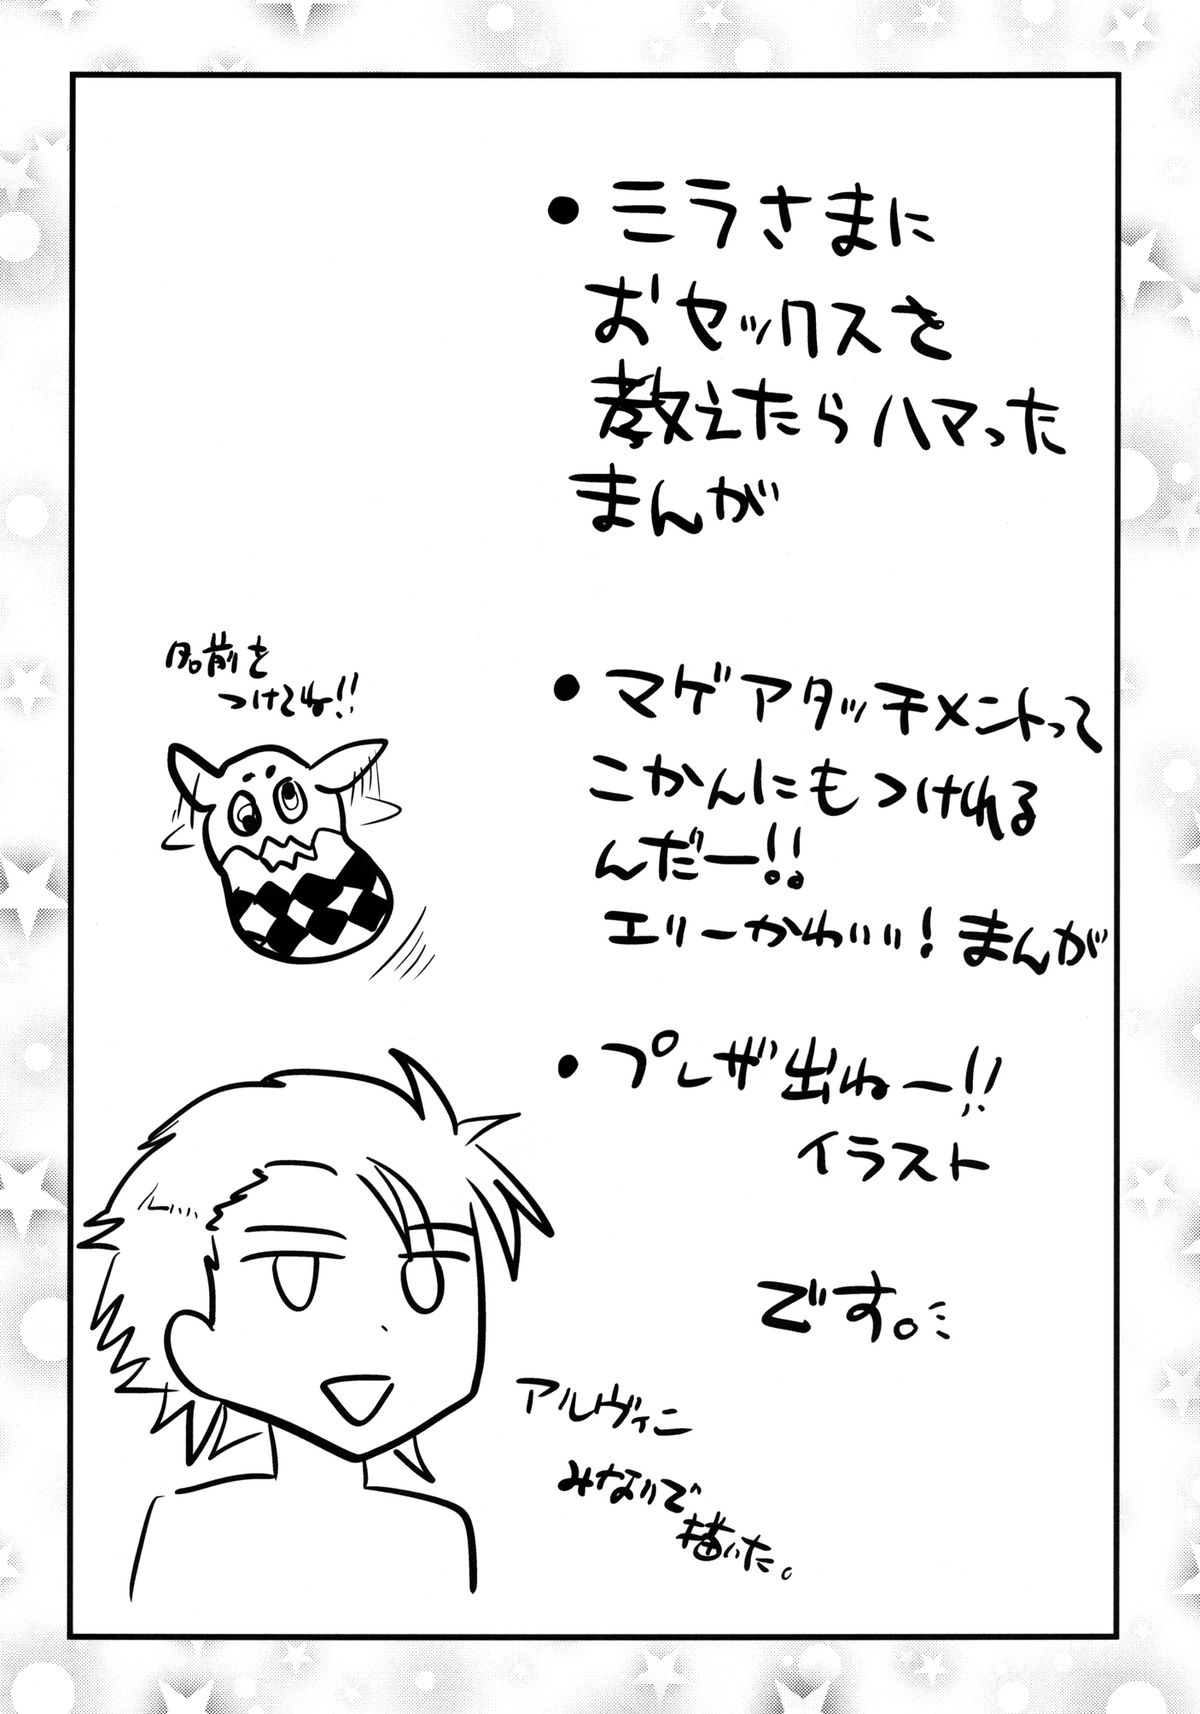 ●ミラさまに
おセックスを
教えたらハマった
まんが
名前を
つけてね!!
●マゲアタッチメントって
こかんにもつけれる
んだー!!
エリーかわいい!まんが
●プレザ出ねー!!
イラスト
です。
アルヴィン
みないで
描いた。